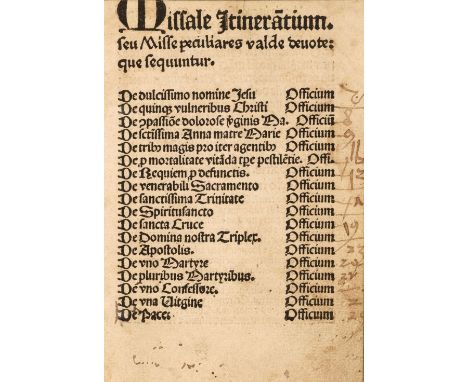 Missale Itinerātium.
seu Misse peculiares valde deuote:
que sequuntur.
De dulcissimo nomine Jesu Officium
De quinqꝫ vulneribus Christi Officium
De ꝯpassiōe dolorose ꝟginis Ma. Officiū
De sctissima Anna matre Marie Officium
De tribꝰ magis pro iter agentibꝰ Officium
De ꝓ mortalitate vitāda tꝑe pestilētie. Offi.
De Requiem ꝓ defunctis. Officium
De venerabili Sacramento Officium
De sanctissima Trinitate Officium
De Spiritusancto Officium
De sancta Cruce Officium
De Domina nostra Triplex. Officium
De Apostolis. Officium
De vno Martyre Officium
De pluribus Martyribus. Officium
De vno Confessore. Officium
De vna Uirgine Officium
De Pace: Officium
8
9
16
19